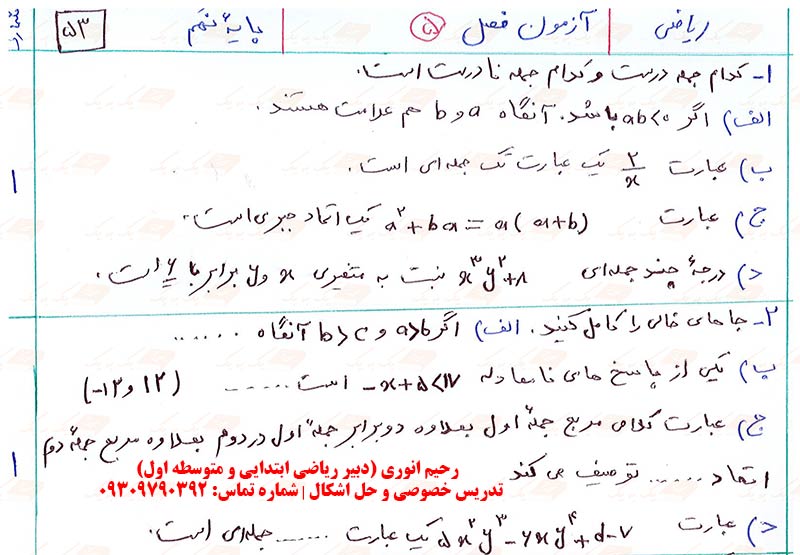 ریاضی آزمون فصل (۵) پایهٔ نهم ۵۳
۱- کدام جمله درست و کدام جمله نادرست است.
الف) اگر ab<۰ باشد. آنگاه a و b هم علامت هستند.
ب) عبارت ۲/x یک عبارت تک جمله ای است.
ج) عبارت a²+ba=a(a+b) یک اتحاد جبری است.
د) درجهٔ چند جمله ای x³y²+۸ نسبت به متغیری x و y برابر با ۶ است.
۱
۲- جاهای خالی را کامل کنید. الف) اگر a>b و b>c آنگاه .......
ب) یکی از پاسخ های نامعادله -x+۵<۱۷ است....... (۱۲ و ۱۲-)
ج) عبارت کلامی مربع جملهٔ اول بعلاوه دو برابر جملهٔ اول در دوم بعلاوه مربع جملهٔ دوم
اتحاد....... توصیف می کند
د) عبارت ۵x²y³-۷xy⁴+d-۷ یک عبارت ....... جمله ای است.
۱
رحیم انوری (دبیر ریاضی ابتدایی و متوسطه اول)
تدریس خصوصی و حل اشکال | شماره تماس: ۰۹۳۰۹۷۹۰۳۹۲